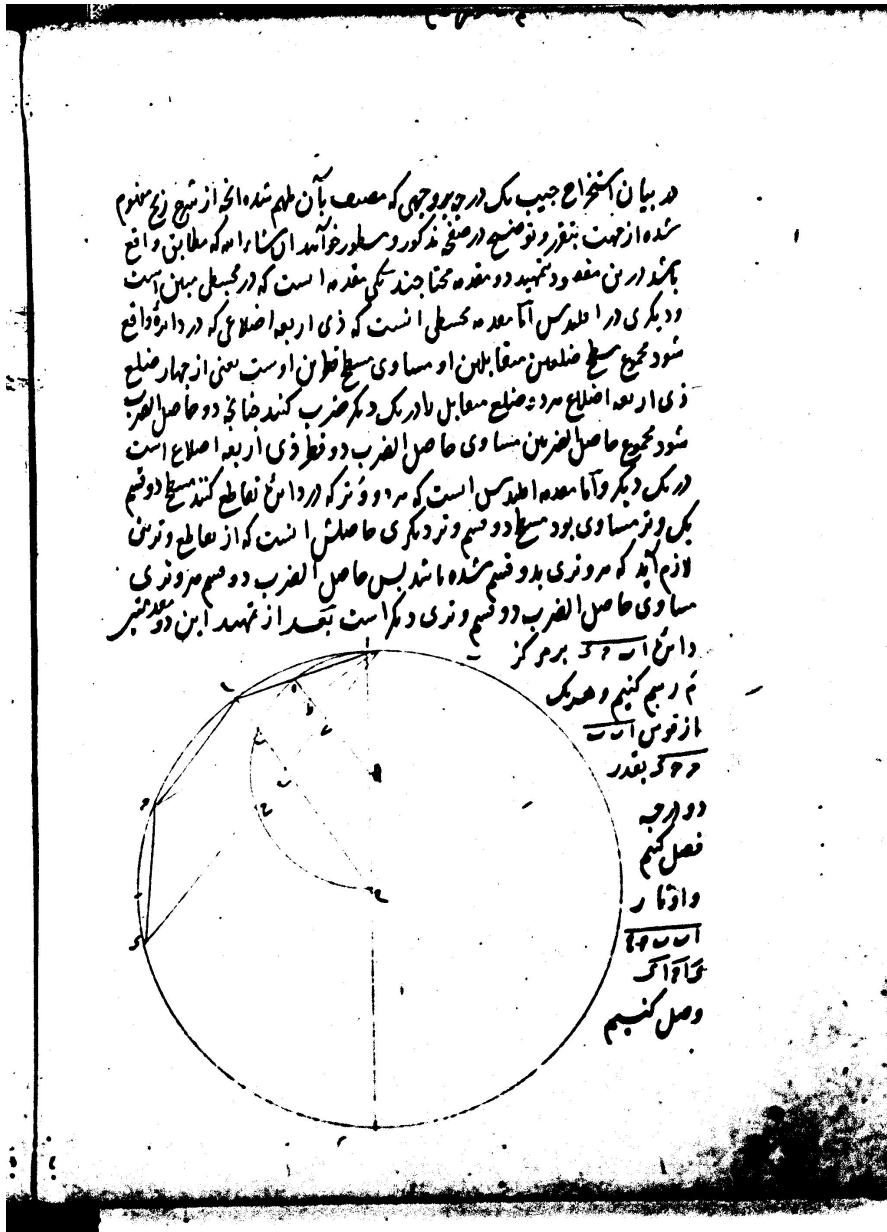 در بیان استخراج جیب یک درجه بروجهی که مصنف بآن ملهم شده انچه از شرح زیج مفهوم
شده از جهت تقرر و توضیح در صفحه مذکور و مسطور خواهد ان شاء الله که مطابق واقع
باشد درین مقصود تمهید دو مقدمه محتاجند یکی مقدمه است که در مجسطی مبین است
و دیگری در اقلیدس اما مقدمه مجسطی انست که ذی اربعه اضلاعی که در دایرهٔ واقع
شود مجموع مسطح ضلعین متقابلین او مساوی مسطح قطرین اوست یعنی از چهار ضلع
ذی اربعه اضلاع هر دو ضلع متقابل را در یک دیگر ضرب کنند چنانچه دو حاصل الضرب
شود مجموع حاصل الضربین مساوی حاصل الضرب دو قطر ذی اربعه اضلاع است
در یک دیگر و اما مقدمه اقلیدس است که هر دو وتر که در دایرهٔ تقاطع کنند مسطح دو قسم
یک وتر مساوی بود مسطح دو قسم وتر دیگری حاصلش انست که از تقاطع وترین
لازم آید که هر وتری بدو قسم شده باشد پس حاصل الضرب دو قسم هر وتری
مساوی حاصل الضرب دو قسم وتری دیگر است بعد از تمهید این دو مقدمه
دایرهٔ ا ب ح د بر مرکز
رسم کنیم و هر یک
از قوس ا ب ب
ح ح د بقدر
دو درجه
فصل کنیم
و اوتار
وصل کنیم